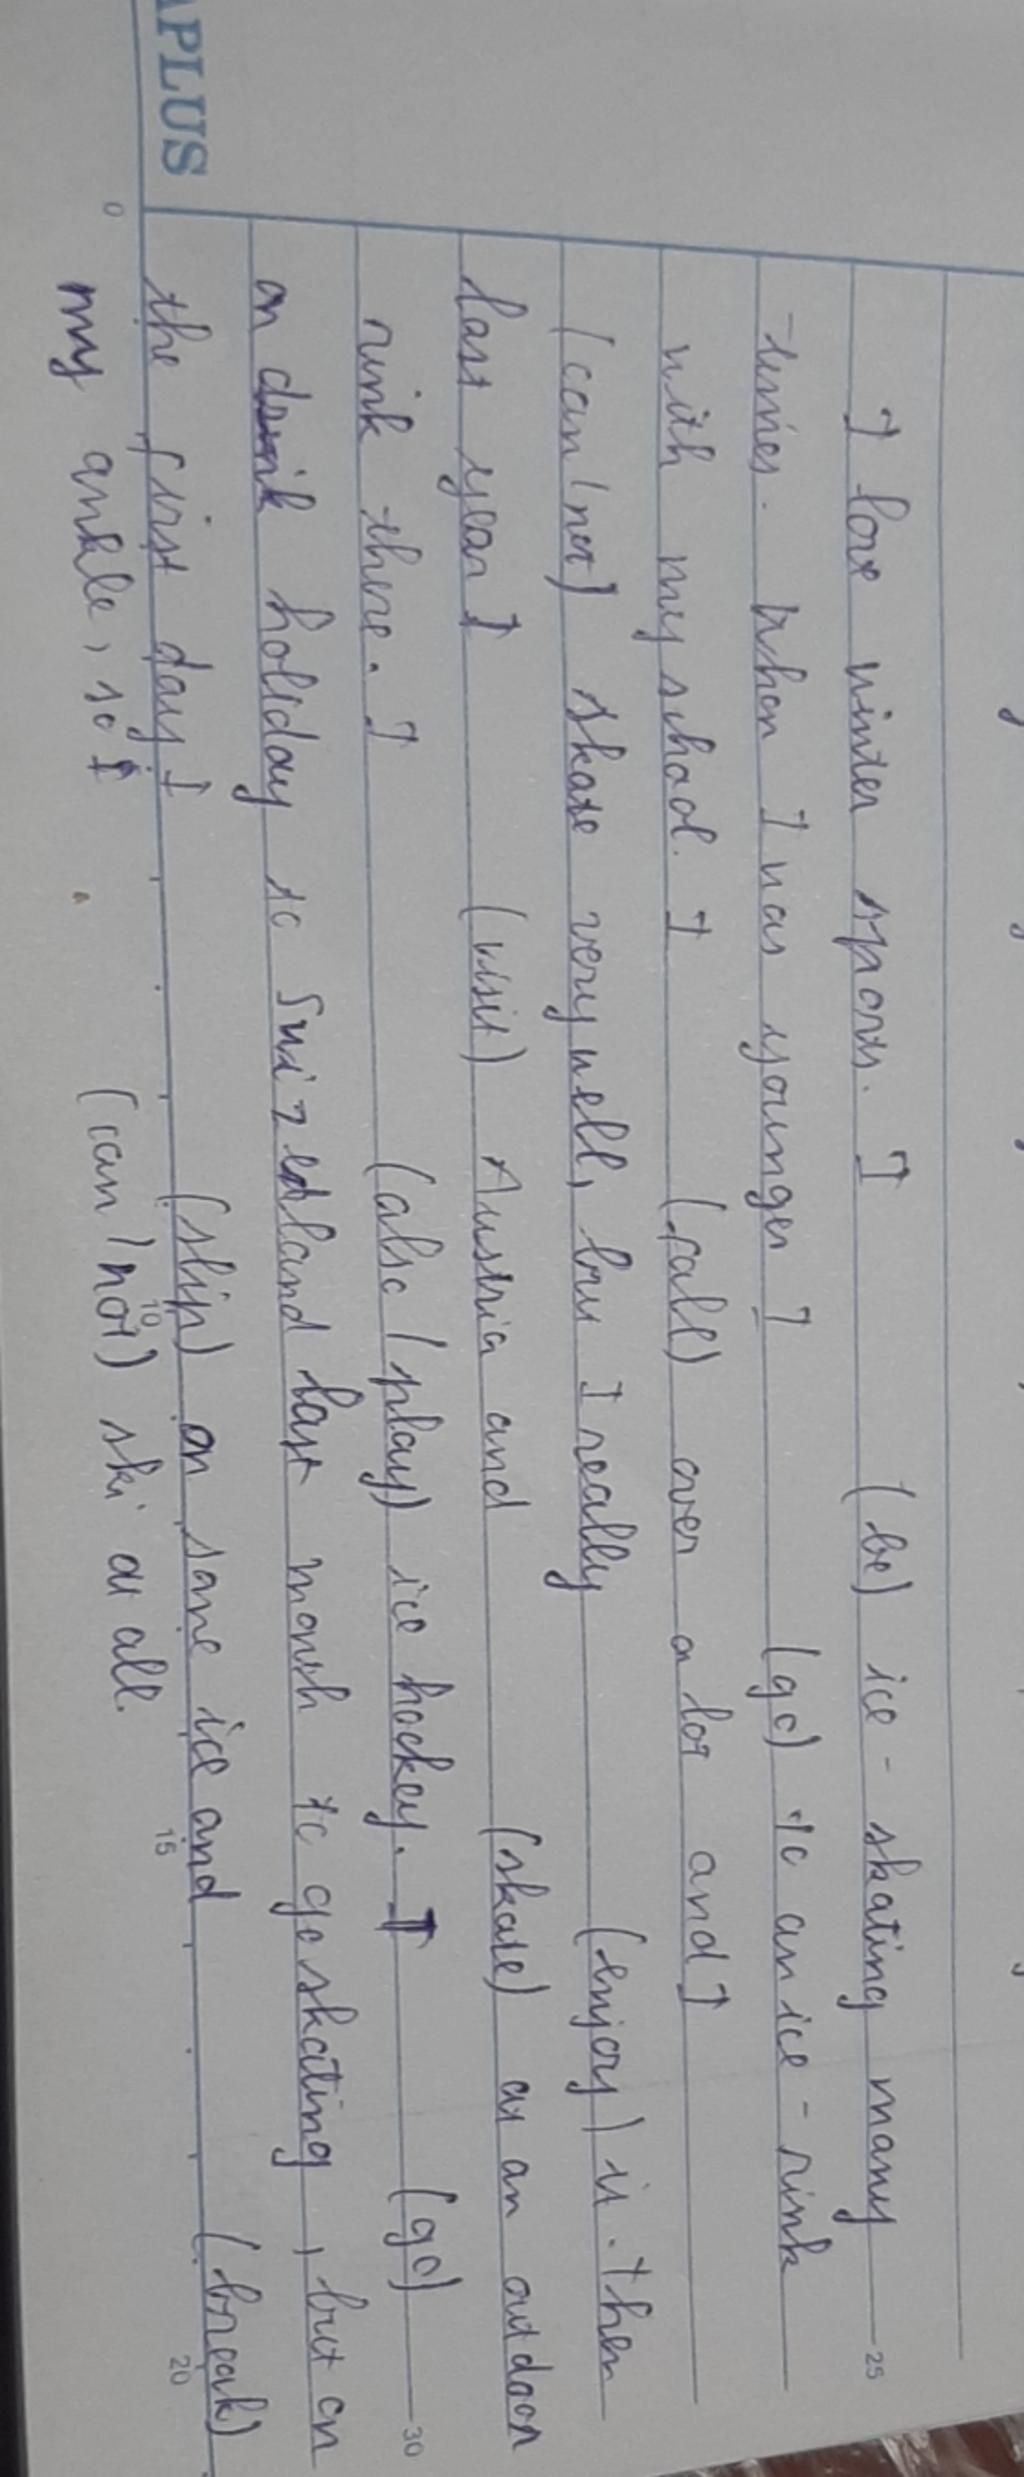 I love winter sports. I (be) ice-skating many
times. When I was younger I (go) to an ice-rink
with my school. I (fall) over a lot and I
(can/not) skate very well, but I really (enjoy) it. then
last year I (visit) Austria and (skate) at an outdoor
rink there. I (also/play) ice hockey. I (go)
on holiday to Switzedland last month to go skating, but on
the first day I (slip) on some ice and (break)
my ankle, so I (can/not) ski at all.
APLUS
0
10
15
20
25
30